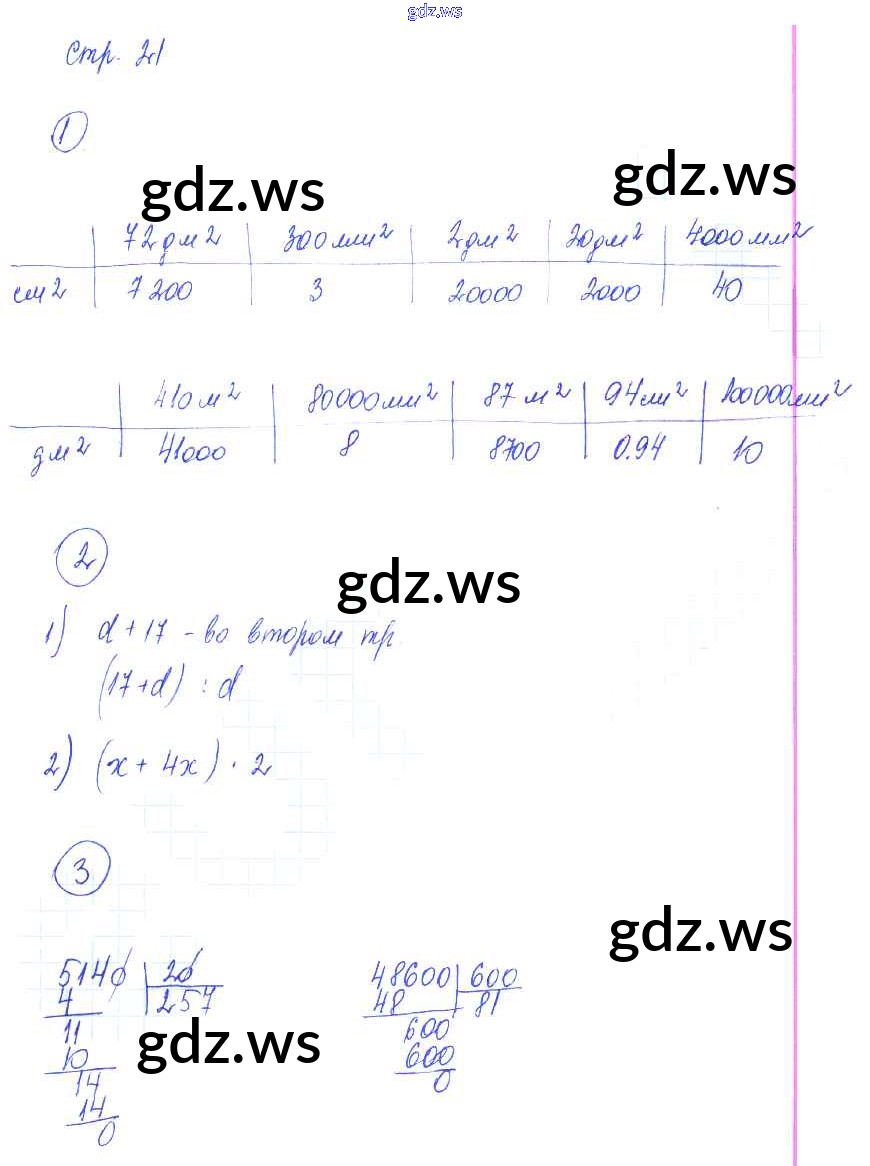 gdz.ws
Стр. 21
1
gdz.ws gdz.ws
72 дм2 300 мм2 2дм2 20дм2 4000 мм2
см2 7200 3 20000 2000 40
410 м2 80000мм2 87 м2 94см2 100000мм2
дм2 41000 8 8700 0.94 10
2
gdz.ws
1) d + 17 - во втором тр.
(17+d) : d
2) (x + 4x) · 2
3
gdz.ws
5140 20 48600 600
4 257 48 81
11 600
gdz.ws
10 600
14 0
14
0